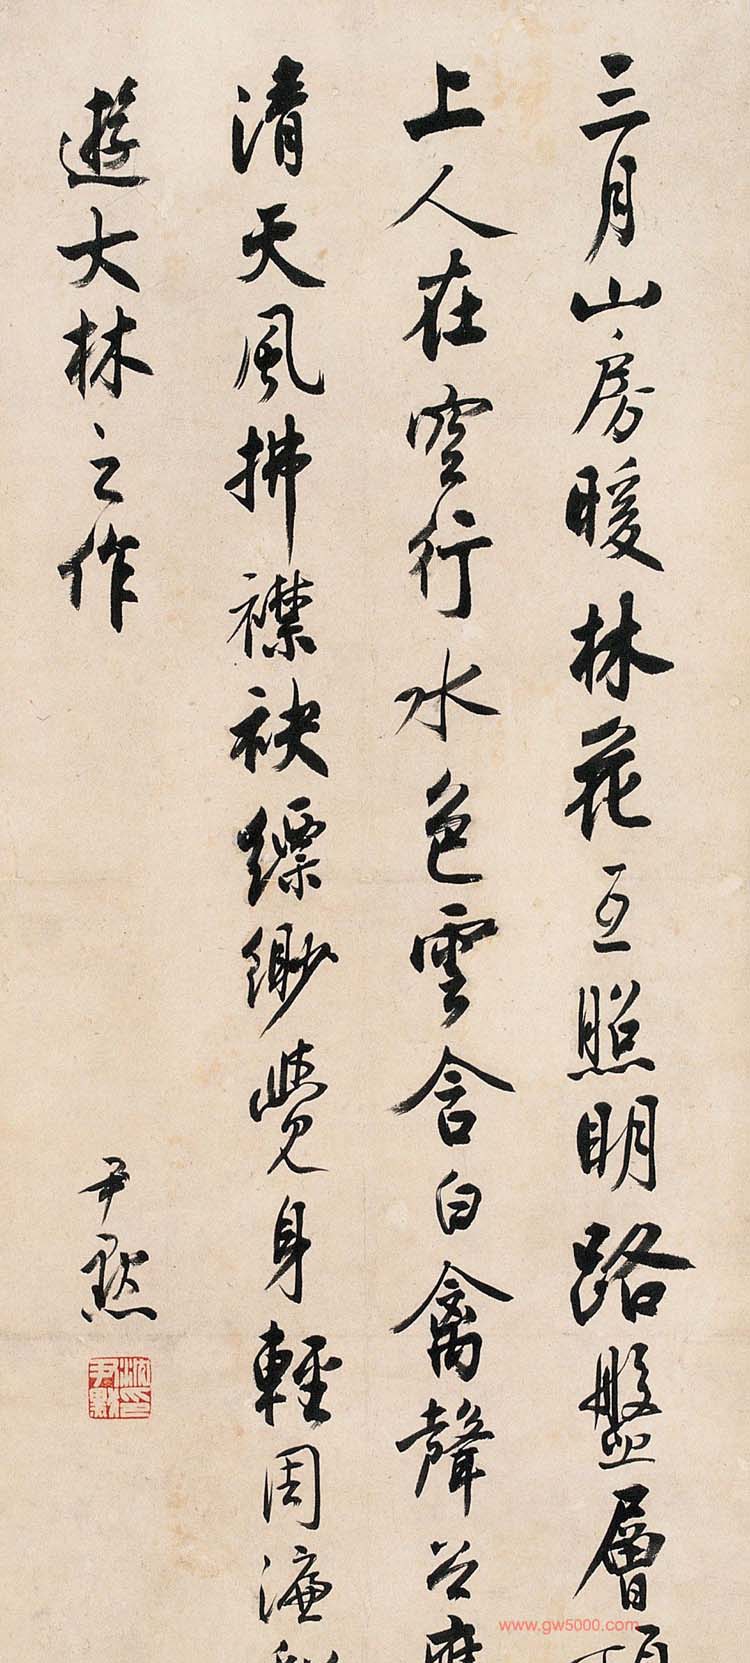 三月山房暖林花互照明路盤層頂
上人在空行水色雲含白禽聲谷應
清天風拂襟袂縹緲覺身輕周濂
遊大林之作
尹默
沈尹默印
www.gw5000.com